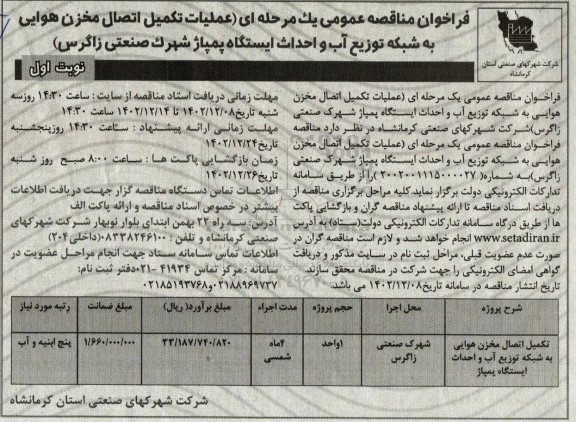 فراخوان مناقصه عمومی یک مرحله ای (عملیات تکمیل اتصال مخزن هوایی
به شبکه توزیع آب و احداث ایستگاه پمپاژ شهرک صنعتی زاگرس)
شرکت شهرکهای صنعتی استان
کرمانشاه
نوبت اول
فراخوان مناقصه عمومی یک مرحله ای (عملیات تکمیل اتصال مخزن
هوایی به شبکه توزیع آب و احداث ایستگاه پمپاژ شهرک صنعتی
زاگرس)شرکت شهرکهای صنعتی کرمانشاه در نظر دارد مناقصه
فراخوان مناقصه عمومی یک مرحله ای (عملیات تکمیل اتصال مخزن
هوایی به شبکه توزیع آب و احداث ایستگاه پمپاژ شهرک صنعتی
زاگرس)به شماره( ۲۰۰۲۰۰۱۱۱۵۰۰۰۰۲۷ )را از طریق سامانه
تدارکات الکترونیکی دولت برگزار نماید.کلیه مراحل برگزاری مناقصه از
دریافت اسناد مناقصه تا ارائه پیشنهاد مناقصه گران و بازگشایی پاکت
ها از طریق درگاه سامانه تدارکات الکترونیکی دولت(ستاد) به آدرس
www.setadiran.ir انجام خواهد شد و لازم است مناقصه گران در
صورت عدم عضویت قبلی، مراحل ثبت نام در سایت مذکور و دریافت
گواهی امضای الکترونیکی را جهت شرکت در مناقصه محقق سازند.
تاریخ انتشار مناقصه در سامانه تاریخ۱۴۰۲/۱۲/۰۸ می باشد.
مهلت زمانی دریافت اسناد مناقصه از سایت : ساعت ۱۴:۳۰ روزسه
شنبه تاریخ۱۴۰۲/۱۲/۰۸ تا ۱۴۰۲/۱۲/۱۴ ساعت ۱۴:۳۰
مهلت زمانی ارائه پیشنهاد : ساعت ۱۴:۳۰ روزپنجشنبه
تاریخ۱۴۰۲/۱۲/۲۴
زمان بازگشایی پاکت ها : ساعت ۸:۰۰ صبح روز شنبه
تاریخ۱۴۰۲/۱۲/۲۶
اطلاعات تماس دستگاه مناقصه گزار جهت دریافت اطلاعات
بیشتر در خصوص اسناد مناقصه و ارائه پاکت الف
آدرس: سه راه ۲۲ بهمن ابتدای بلوار نوبهار شرکت شهرکهای
صنعتی کرمانشاه و تلفن : ۰۸۳۳۸۲۴۶۱۰۰(داخلی۲۰۴)
اطلاعات تماس سامانه ستاد جهت انجام مراحل عضویت در
سامانه : مرکز تماس ۴۱۹۳۴ -۰۲۱ دفتر ثبت نام:
۰۲۱۸۸۹۶۹۷۳۷و۰۲۱۸۵۱۹۳۷۶۸
شرح پروژه | محل اجرا | حجم پروژه | مدت اجراء | مبلغ برآورد( ریال) | مبلغ ضمانت | رتبه مورد نیاز
تکمیل اتصال مخزن هوایی به شبکه توزیع آب و احداث ایستگاه پمپاژ | شهرک صنعتی زاگرس | ۱واحد | ۴ماه شمسی | ۳۳/۱۸۷/۷۴۰/۸۲۰ | ۱/۶۶۰/۰۰۰/۰۰۰ | پنج ابنیه و آب
شرکت شهرکهای صنعتی استان کرمانشاه